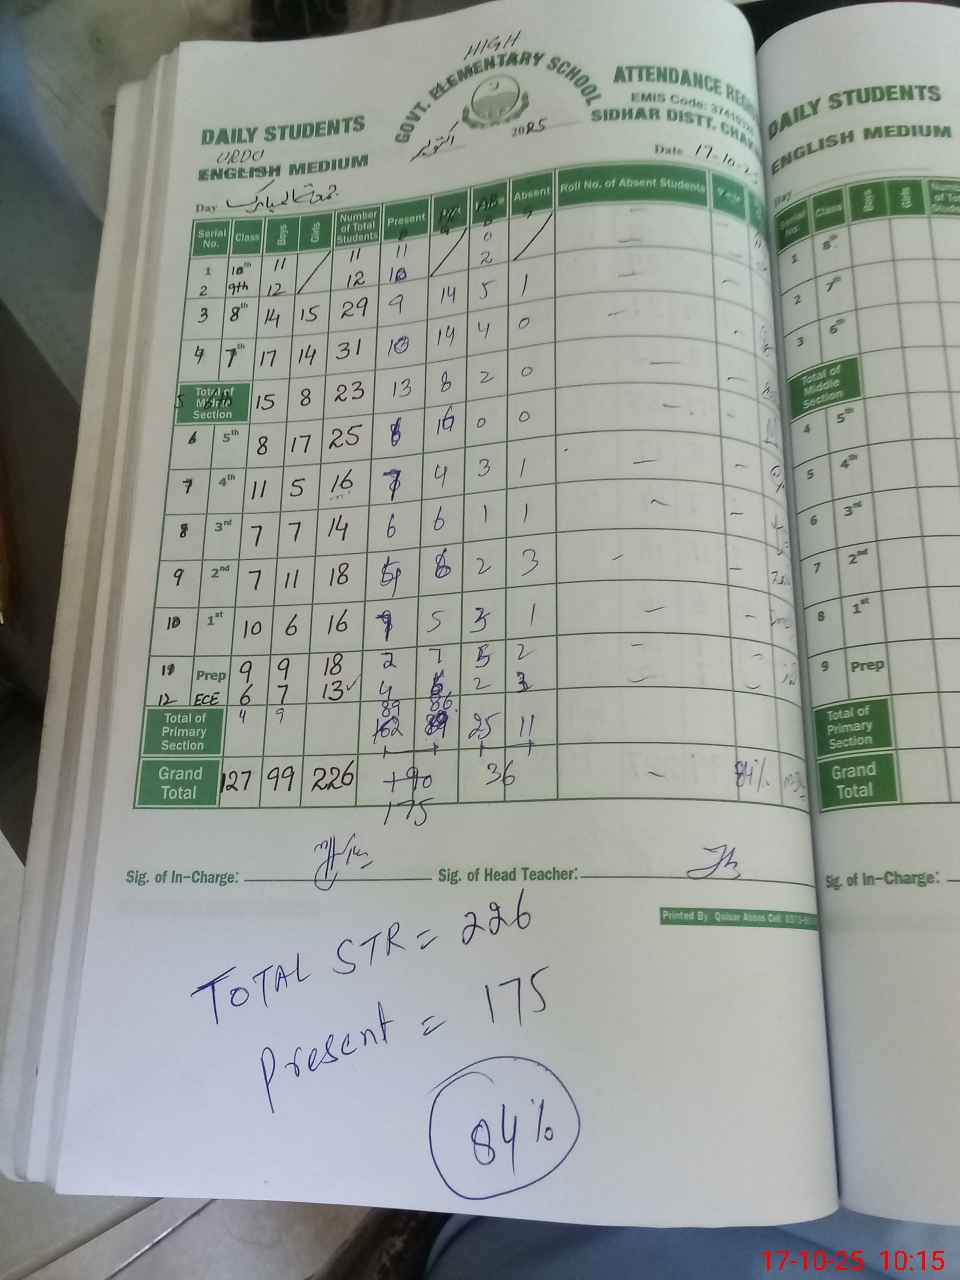 HIGH
GOVT. ELEMENTARY SCHOOL
ATTENDANCE REG
EMIS Code: 37410
SIDHAR DISTT. CHAK
DAILY STUDENTS
URDU
ENGLISH MEDIUM
اکتوبر 2025
Date 17-10-2
Day جمعۃ المبارک
Serial No. Class Boys Girls Number of Total Students Present Absent Roll No. of Absent Students
1 10th 11 / 11 11 / 0 /
2 9th 12 / 12 10 / 2 /
3 8th 14 15 29 9 14 5 1 –
4 7th 17 14 31 13 14 4 0 –
5 Total of Middle Section 15 8 23 13 8 2 0 –
6 5th 8 17 25 8 16 0 0 –
7 4th 11 5 16 7 4 3 1 –
8 3rd 7 7 14 6 6 1 1 –
9 2nd 7 11 18 5 8 2 3 –
10 1st 10 6 16 5 3 1 –
11 Prep 9 9 18 2 7 5 2 –
12 ECE 6 7 13✓ 4 2 3 –
4 9 89 86
Total of Primary Section 25 11
Grand Total 127 99 226 +90 36 – 84%
175
Sig. of In-Charge:
Sig. of Head Teacher:
Printed By Quisar Abbas Cell:
TOTAL STR = 226
Present = 175
84%
DAILY STUDENTS
ENGLISH MEDIUM
Serial No. Class Boys Girls
1 8th
2 7th
3 6th
Total of Middle Section
4 5th
5 4th
6 3rd
7 2nd
8 1st
9 Prep
Total of Primary Section
Grand Total
Sig. of In-Charge:
17-10-25 10:15